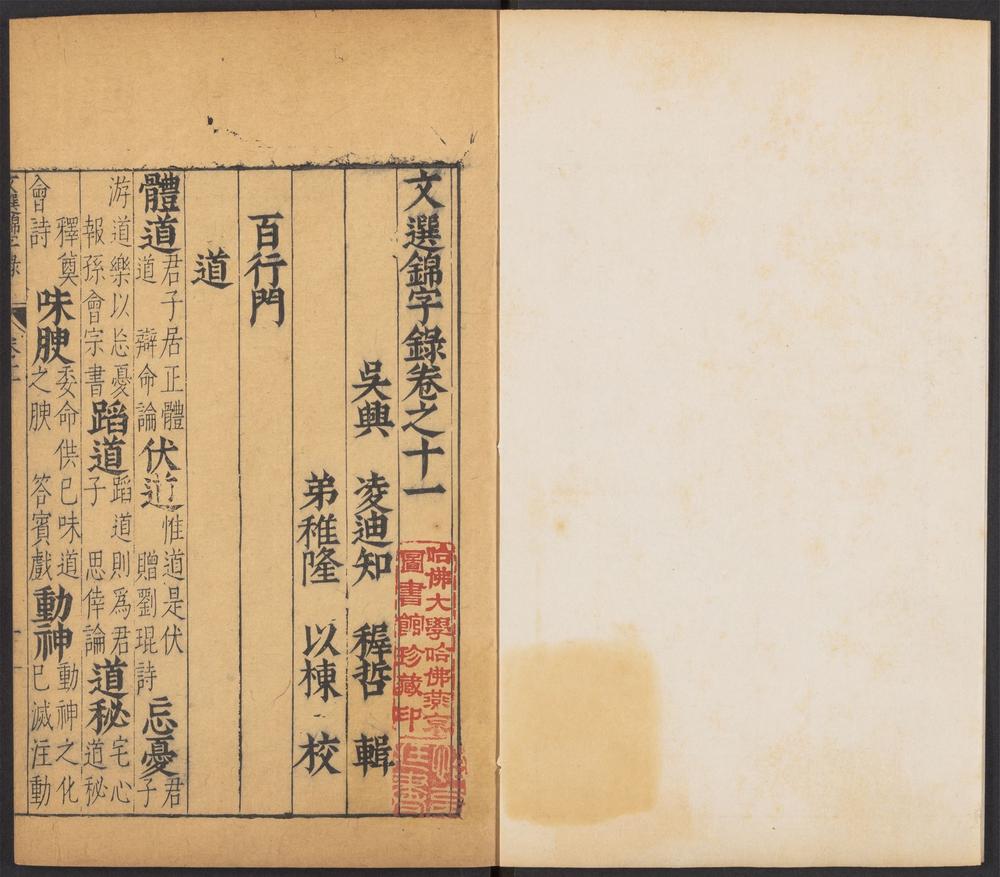 文選錦字錄卷之十一
吳興 凌迪知 稺哲 輯
弟稚隆 以棟 校
百行門
道
體道 君子居正體道 辯命論 伏道 惟道是伏 贈劉琨詩 忘憂 君子
游道樂以忘憂 報孫會宗書 蹈道 蹈道則爲君子 思倖論 道秘 宅心道秘
釋奠會詩 味腴 委命供已味道之腴 答賓戲 動神 動神之化已滅注動
哈佛大學哈佛燕京
圖書館珍藏印